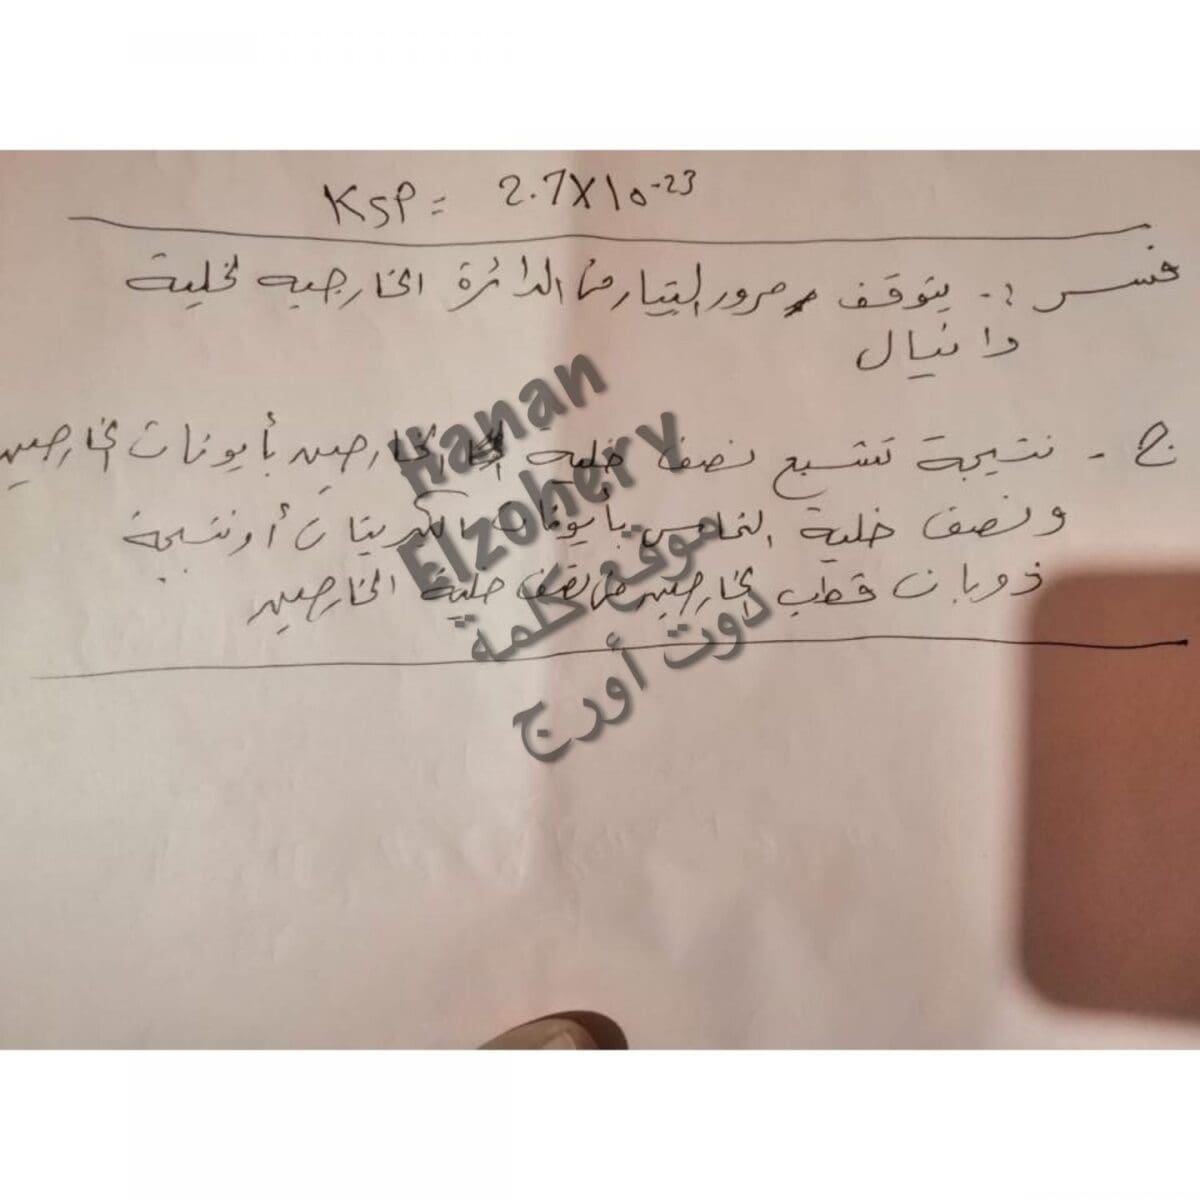 Ksp = 2.7X10-23
فسر :- يتوقف مرور التيار من الدائرة الخارجيه لخلية
دانيال
ج - نتيجة تشبع نصف خلية الخارصين بأيونات الخارصين
ونصف خلية النحاس بأيونات الكبريتات أو نتيجة
ذوبان قطب الخارصين من نصف خلية الخارصين
Hanan
Elzohery
موقع كلمة
دوت أورج